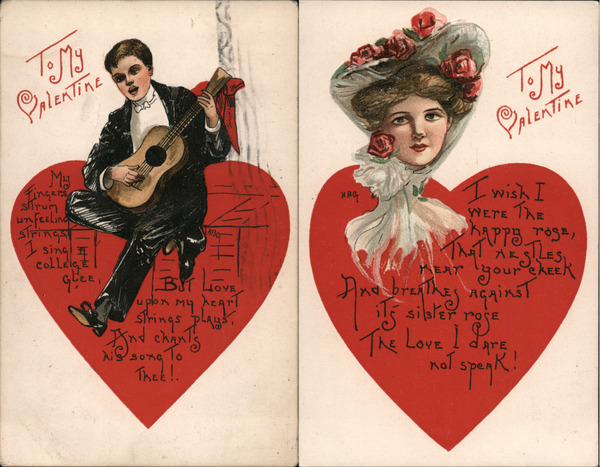 To My
Valentine
My
Fingers
strum
unfeeling
strings
I sing a
college
Glee,
But Love
upon my heart
strings plays,
And chants
his song to
Thee!!
HBG
To My
Valentine
HBG
I wish I
were the
happy rose,
That nestles
near your cheek
And breathes against
it's sister rose
The Love I dare
not speak!